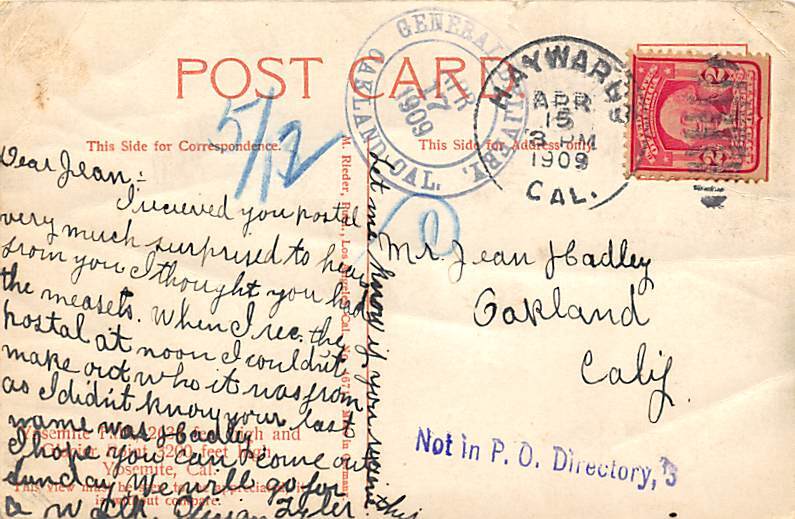 POST CARD
This Side for Correspondence.
This Side for Address only
GENERAL DELIVERY.
APR
17
1909
OAKLAND, CAL.
HAYWARDS
APR
15
3 PM
1909
CAL.
5/12
Dear Jean:
I recieved you postal
very much surprised to hear
from you I thought you had
the measels. When I rec. the
postal at noon I couldn't
make out who it was from
as I didn't know your last
name was Hadley
I hope you can come out
Sunday we will go for
a walk. Tyler
Let me know if you receive this
Mr. Jean Hadley
Oakland
Calif.
Not in P. O. Directory,
M. Rieder, Publ., Los Angeles, Cal. Made in Germany.
Yosemite Falls 2026 feet high and
Glacier Point 3200 feet high
Yosemite, Cal.
This view must be seen to be appreciated. It
is without compare.